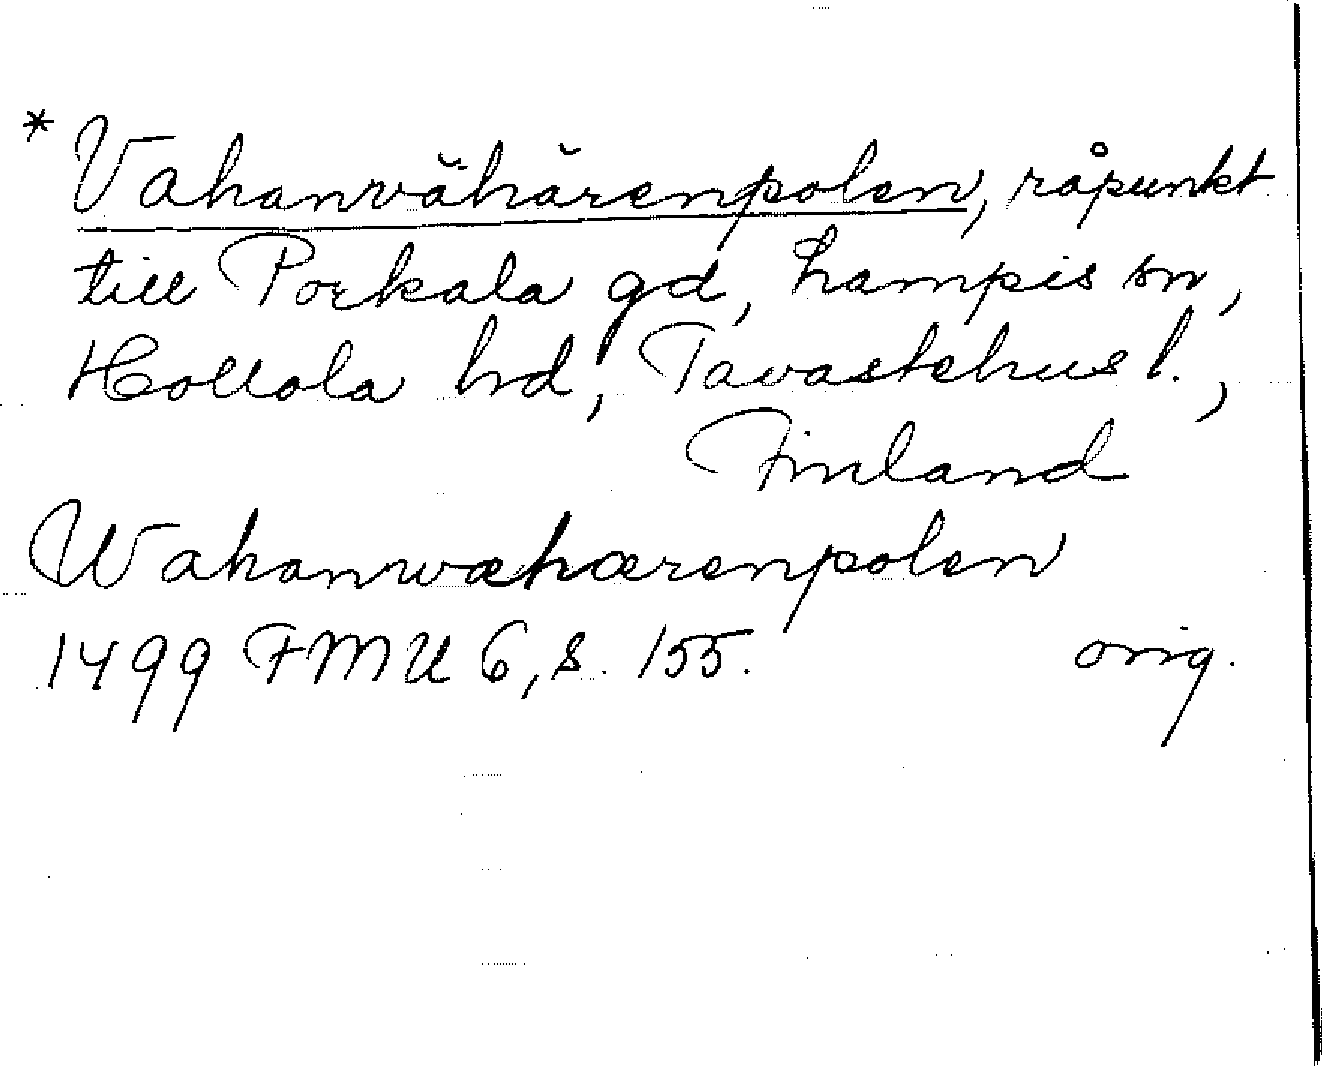 * Vahanvähärenpolen, råpunkt
till Porkala gd, Lampis sn,
Hollola hd, Tavastehus l.,
Finland
Wahanwæhærenpolen
1499 FMU 6, s. 155. orig.